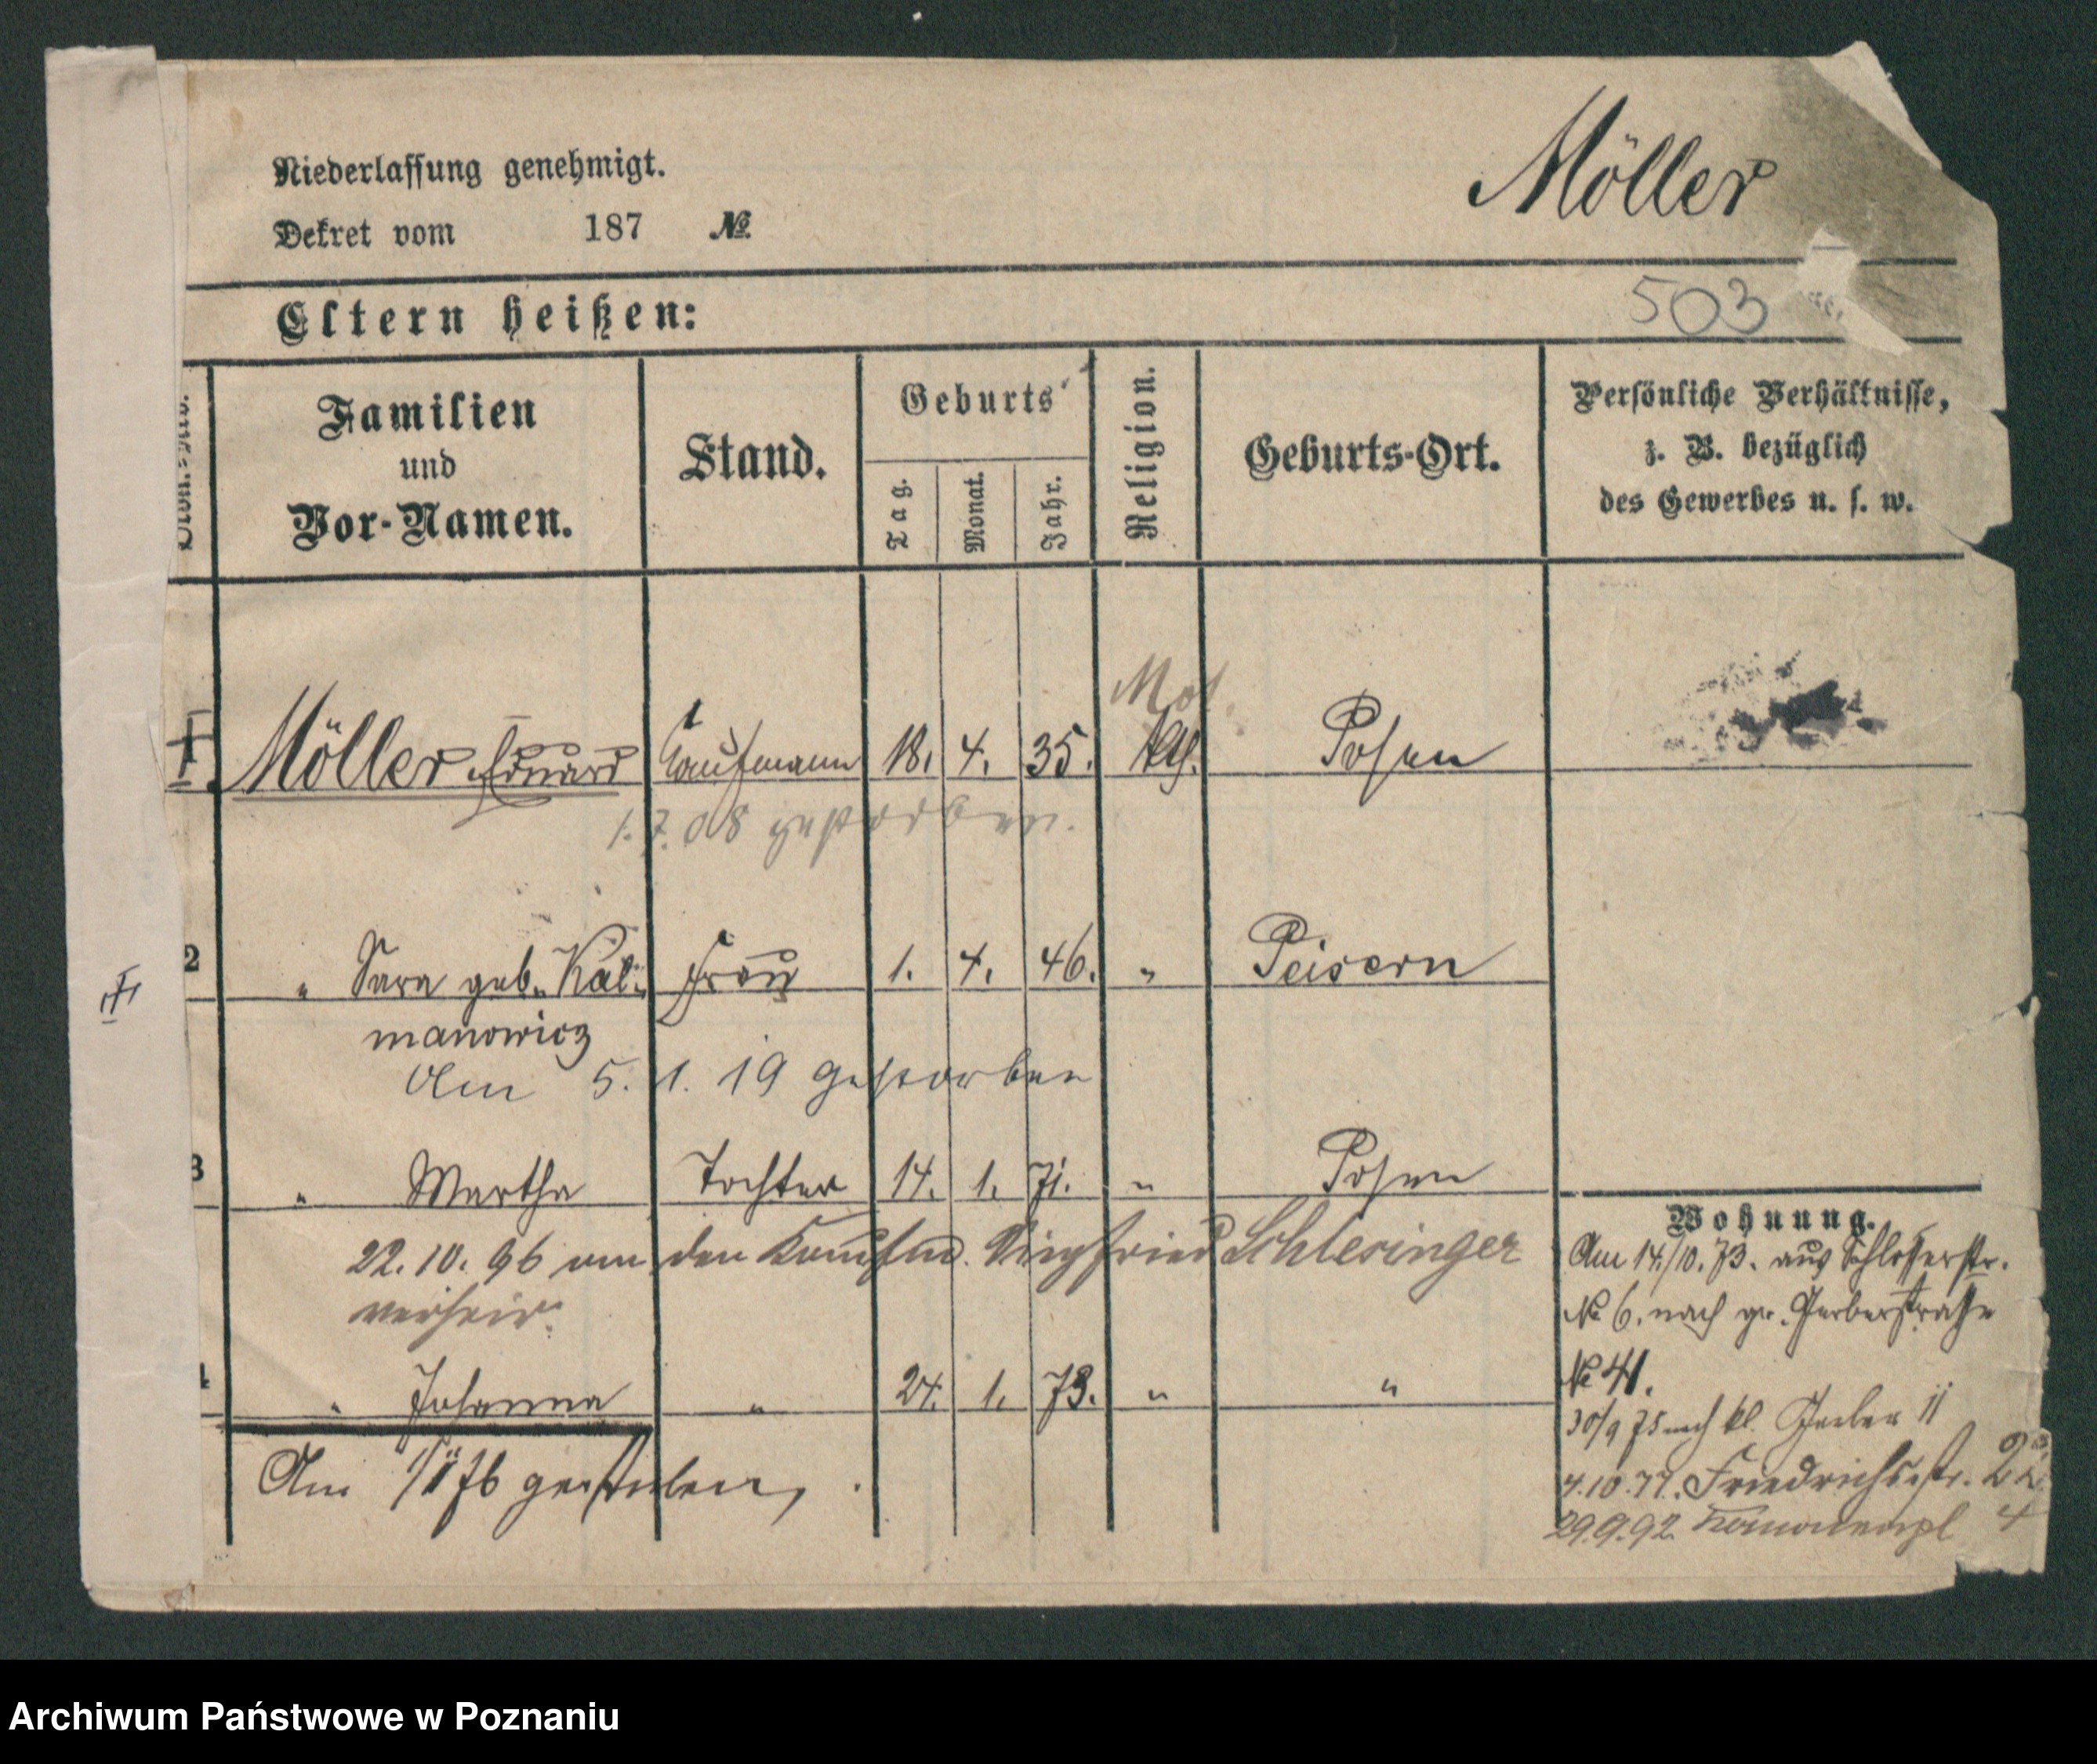 Möller
Niederlassung genehmigt.
Dekret vom 187 №
503
Eltern heißen:
Familien und Vor-Namen.
Stand.
Geburts
Tag. Monat. Jahr.
Religion.
Geburts-Ort.
Persönliche Verhältnisse,
z. B. bezüglich
des Gewerbes u. s. w.
Mos.
Möller Eduard Kaufmann 18. 4. 35. Posen
1.7.08 gestorben.
2 " Sara geb. Kal- Frau 1. 4. 46. " Peisern
manowicz
Am 5. 1. 19 gestorben
3 " Martha Tochter 14. 1. 71. " Posen
22. 10. 96 an den Kaufm. Siegfried Schlesinger
verheir.
4 " Johanna " 24. 1. 73. " "
Am 76 gestorben,
Wohnung.
Am 14./10. 73. aus Schlosserstr.
№ 6. nach gr. Gerberstraße
№ 41.
30/9 75 nach kl. Gerber 11
4.10.77. Friedrichsstr. 22
29.9.92 Kanonenpl 4
Archiwum Państwowe w Poznaniu